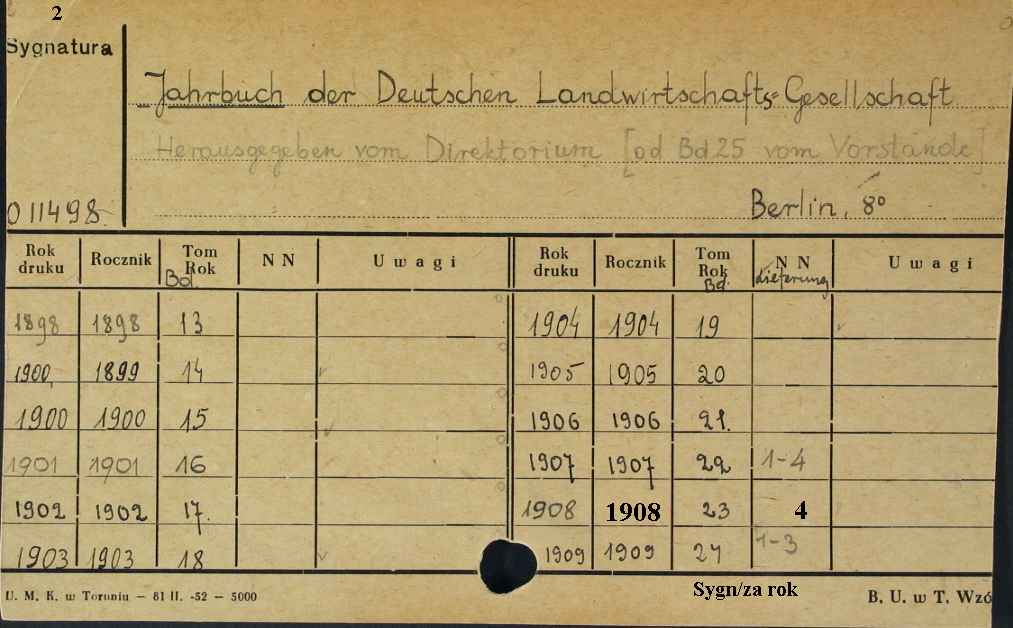 2
Sygnatura
Jahrbuch der Deutschen Landwirtschafts-Gesellschaft
Herausgegeben vom Direktorium [od Bd 25 vom Vorstande]
011498
Berlin, 8°
Rok druku Rocznik Tom Rok Bd. NN Uwagi Rok druku Rocznik Tom Rok Bd. NN Lieferung Uwagi
1898 1898 13 1904 1904 19
1900 1899 14 1905 1905 20
1900 1900 15 1906 1906 21.
1901 1901 16 1907 1907 22 1-4
1902 1902 17. 1908 1908 23 4
1903 1903 18 1909 1909 24 1-3
U. M. K. w Toruniu — 81 II. -52 — 5000 Sygn/za rok B. U. w T. Wzó